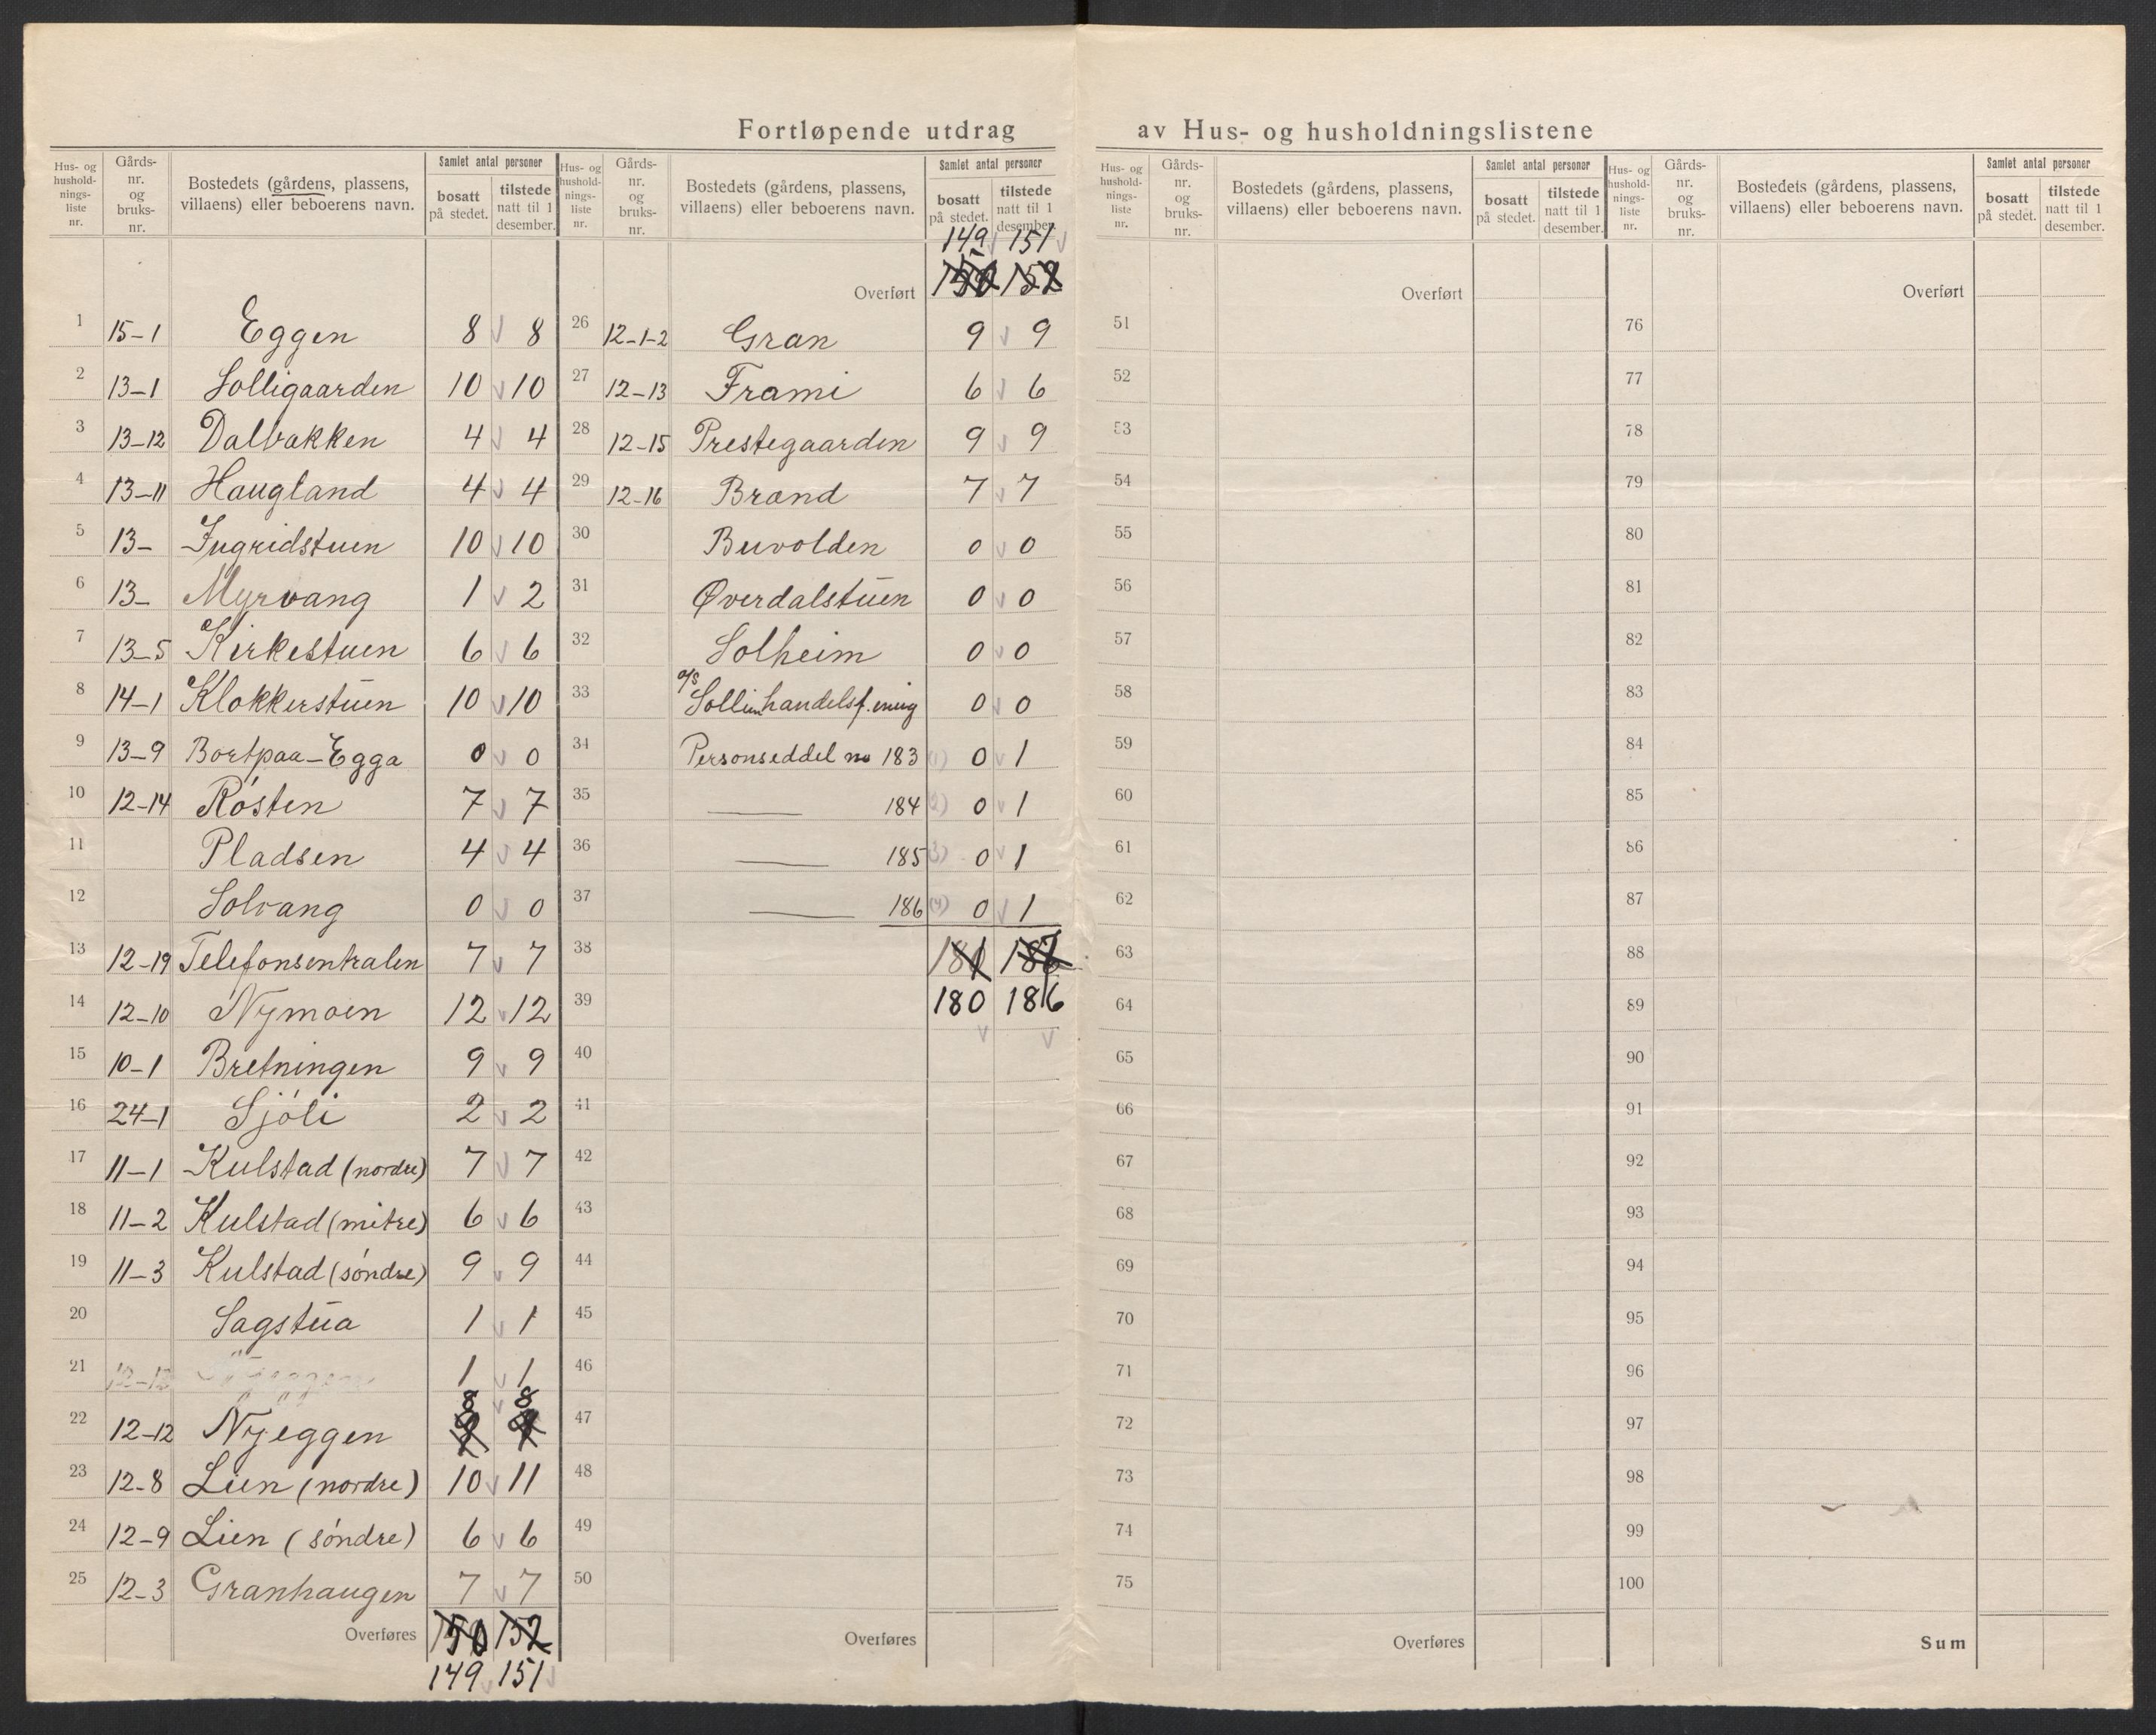 Fortløpende utdrag av Hus- og husholdningslistene
Hus- og husholdnings-liste nr. Gårds-nr. og bruks-nr. Bostedets (gårdens, plassens, villaens) eller beboerens navn. Samlet antal personer bosatt på stedet. tilstede natt til 1 desember.
1 15-1 Eggen 8 8
2 13-1 Solligaarden 10 10
3 13-12 Dalbakken 4 4
4 13-11 Haugland 4 4
5 13- Ingridstuen 10 10
6 13- Myrvang 1 2
7 13-5 Kirkestuen 6 6
8 14-1 Klokkerstuen 10 10
9 13-9 Bortpaa-Egga 0 0
10 12-14 Rósten 7 7
11 Pladsen 4 4
12 Solvang 0 0
13 12-19 Telefonsentralen 7 7
14 12-10 Nymoen 12 12
15 10-1 Bretningen 9 9
16 24-1 Sjóli 2 2
17 11-1 Kulstad (nordre) 7 7
18 11-2 Kulstad (mitre) 6 6
19 11-3 Kulstad (söndre) 9 9
20 Sagstua 1 1
21 12-12 1 1
22 12-12 Nyeggen 8 8
23 12-8 Lien (nordre) 10 11
24 12-9 Lien (söndre) 6 6
25 12-3 Granhaugen 7 7
Overføres 150 152
149 151
Hus- og husholdnings-liste nr. Gårds-nr. og bruks-nr. Bostedets (gårdens, plassens, villaens) eller beboerens navn. Samlet antal personer bosatt på stedet. tilstede natt til 1 desember.
149 151
Overført 150 152
26 12-1-2 Gran 9 9
27 12-13 Frami 6 6
28 12-15 Prestegaarden 9 9
29 12-16 Brænd 7 7
30 Buvolden 0 0
31 Øverdalstuen 0 0
32 Solheim 0 0
33 a/s Sollien handelsf.ening 0 0
34 Personseddel no 183 (1) 0 1
35 184 (2) 0 1
36 185 (3) 0 1
37 186 (4) 0 1
38 181 187
39 180 186
40
41
42
43
44
45
46
47
48
49
50
Overføres
Hus- og husholdnings-liste nr. Gårds-nr. og bruks-nr. Bostedets (gårdens, plassens, villaens) eller beboerens navn. Samlet antal personer bosatt på stedet. tilstede natt til 1 desember.
Overført
51
52
53
54
55
56
57
58
59
60
61
62
63
64
65
66
67
68
69
70
71
72
73
74
75
Overføres
Hus- og husholdnings-liste nr. Gårds-nr. og bruks-nr. Bostedets (gårdens, plassens, villaens) eller beboerens navn. Samlet antal personer bosatt på stedet. tilstede natt til 1 desember.
Overført
76
77
78
79
80
81
82
83
84
85
86
87
88
89
90
91
92
93
94
95
96
97
98
99
100
Sum